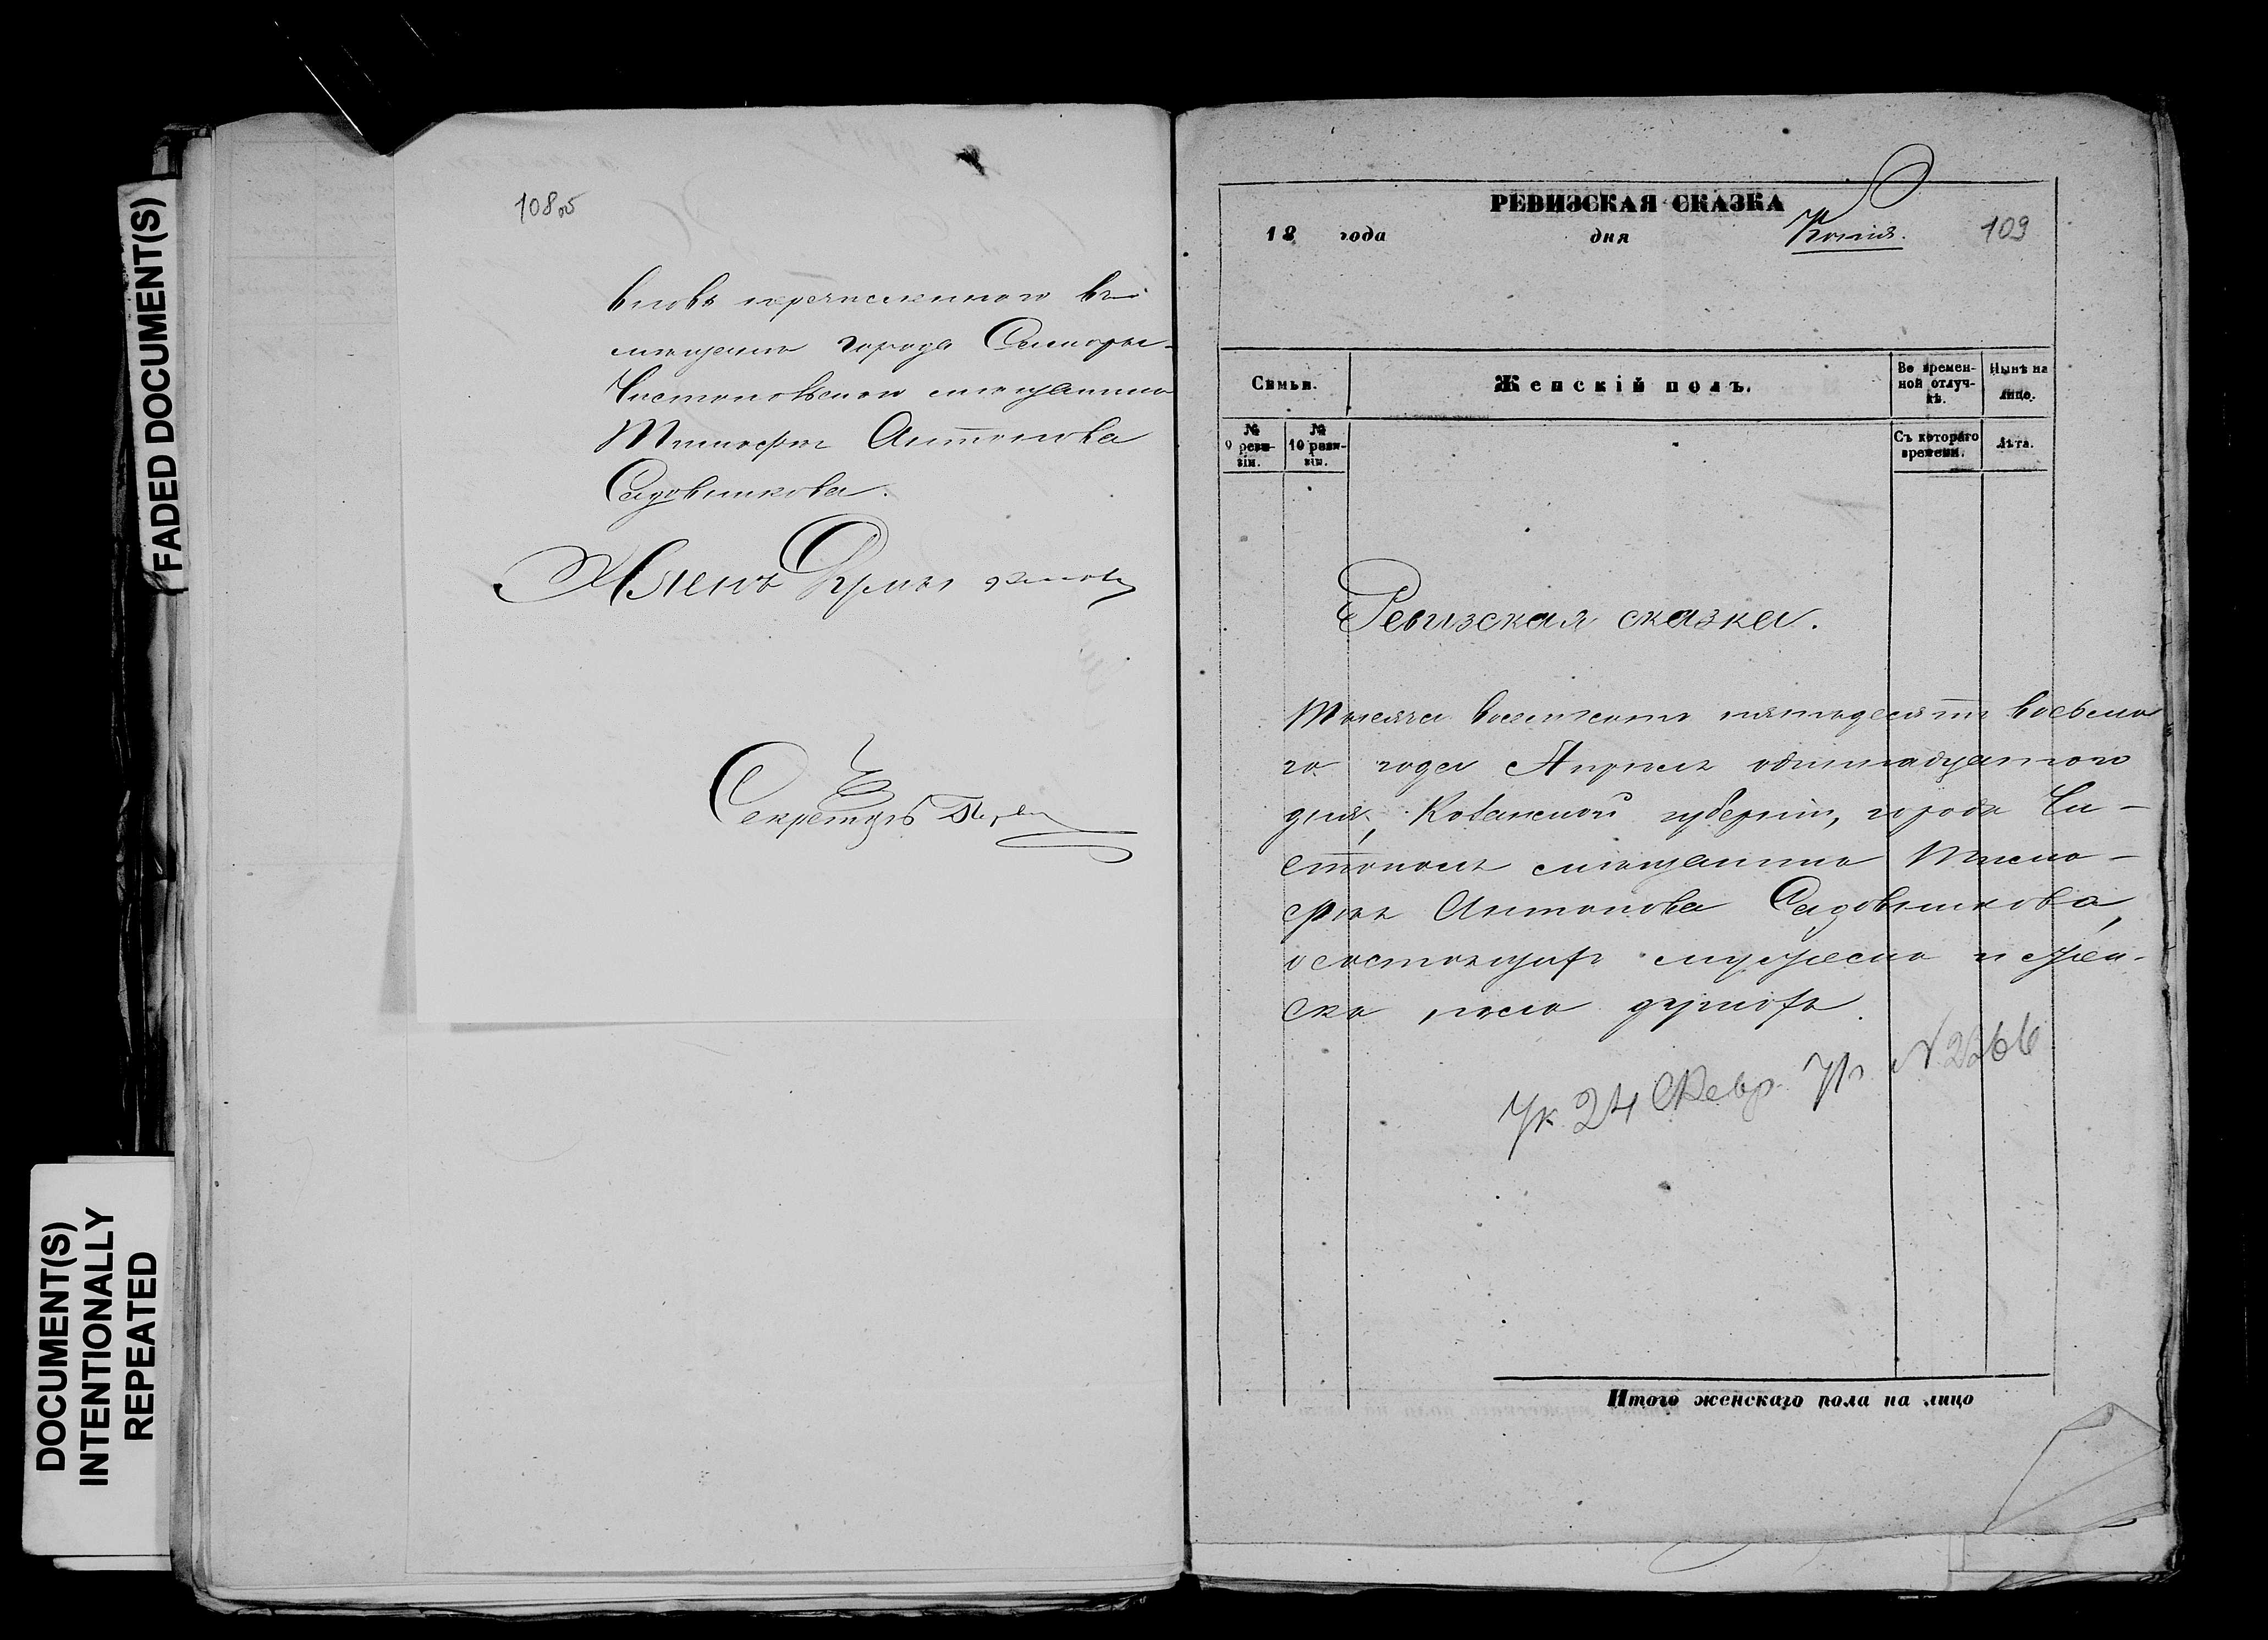 FADED DOCUMENT(S)
DOCUMENT(S)
INTENTIONALLY
REPEATED
108об
вновь перечисленного въ
мѣщане города Самары
Чистопольскаго мѣщанина
Тимофея Антонова
Садовникова.
Членъ Думы
Секретарь
РЕВИЗСКАЯ СКАЗКА
18 года дня Копія. 109
Семьи.
Женскій полъ.
Во времен-
ной отлуч-
кѣ.
Нынѣ на
лицо.
№
9 реви-
зіи.
№
10 реви-
зіи.
Съ котораго
времени.
Лѣта.
Ревизская сказка.
Тысяча восемьсотъ пятьдесятъ восьма
го года Апрѣля одинадцатого
дня, Казанской губерніи, города Чи-
стополя мѣщанина Тимо-
фея Антонова Садовникова,
о состоящихъ мужеска и жен-
ска пола душахъ.
Ук 24 Февр. 71 г. № 2266
Итого женскаго пола на лицо